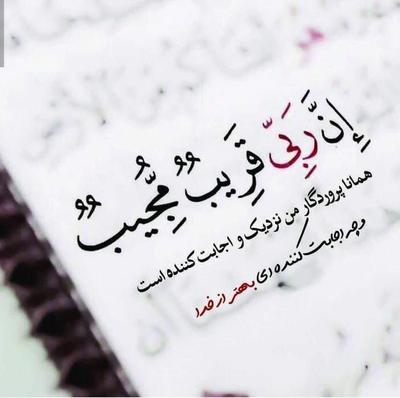 إِنَّ رَبِّیٖ قَرِیَبٌ مُجِّیُبٌ
همانا پروردگار من نزدیک و اجابت کننده است
و چه اجابت کننده ای بهتر از خدا